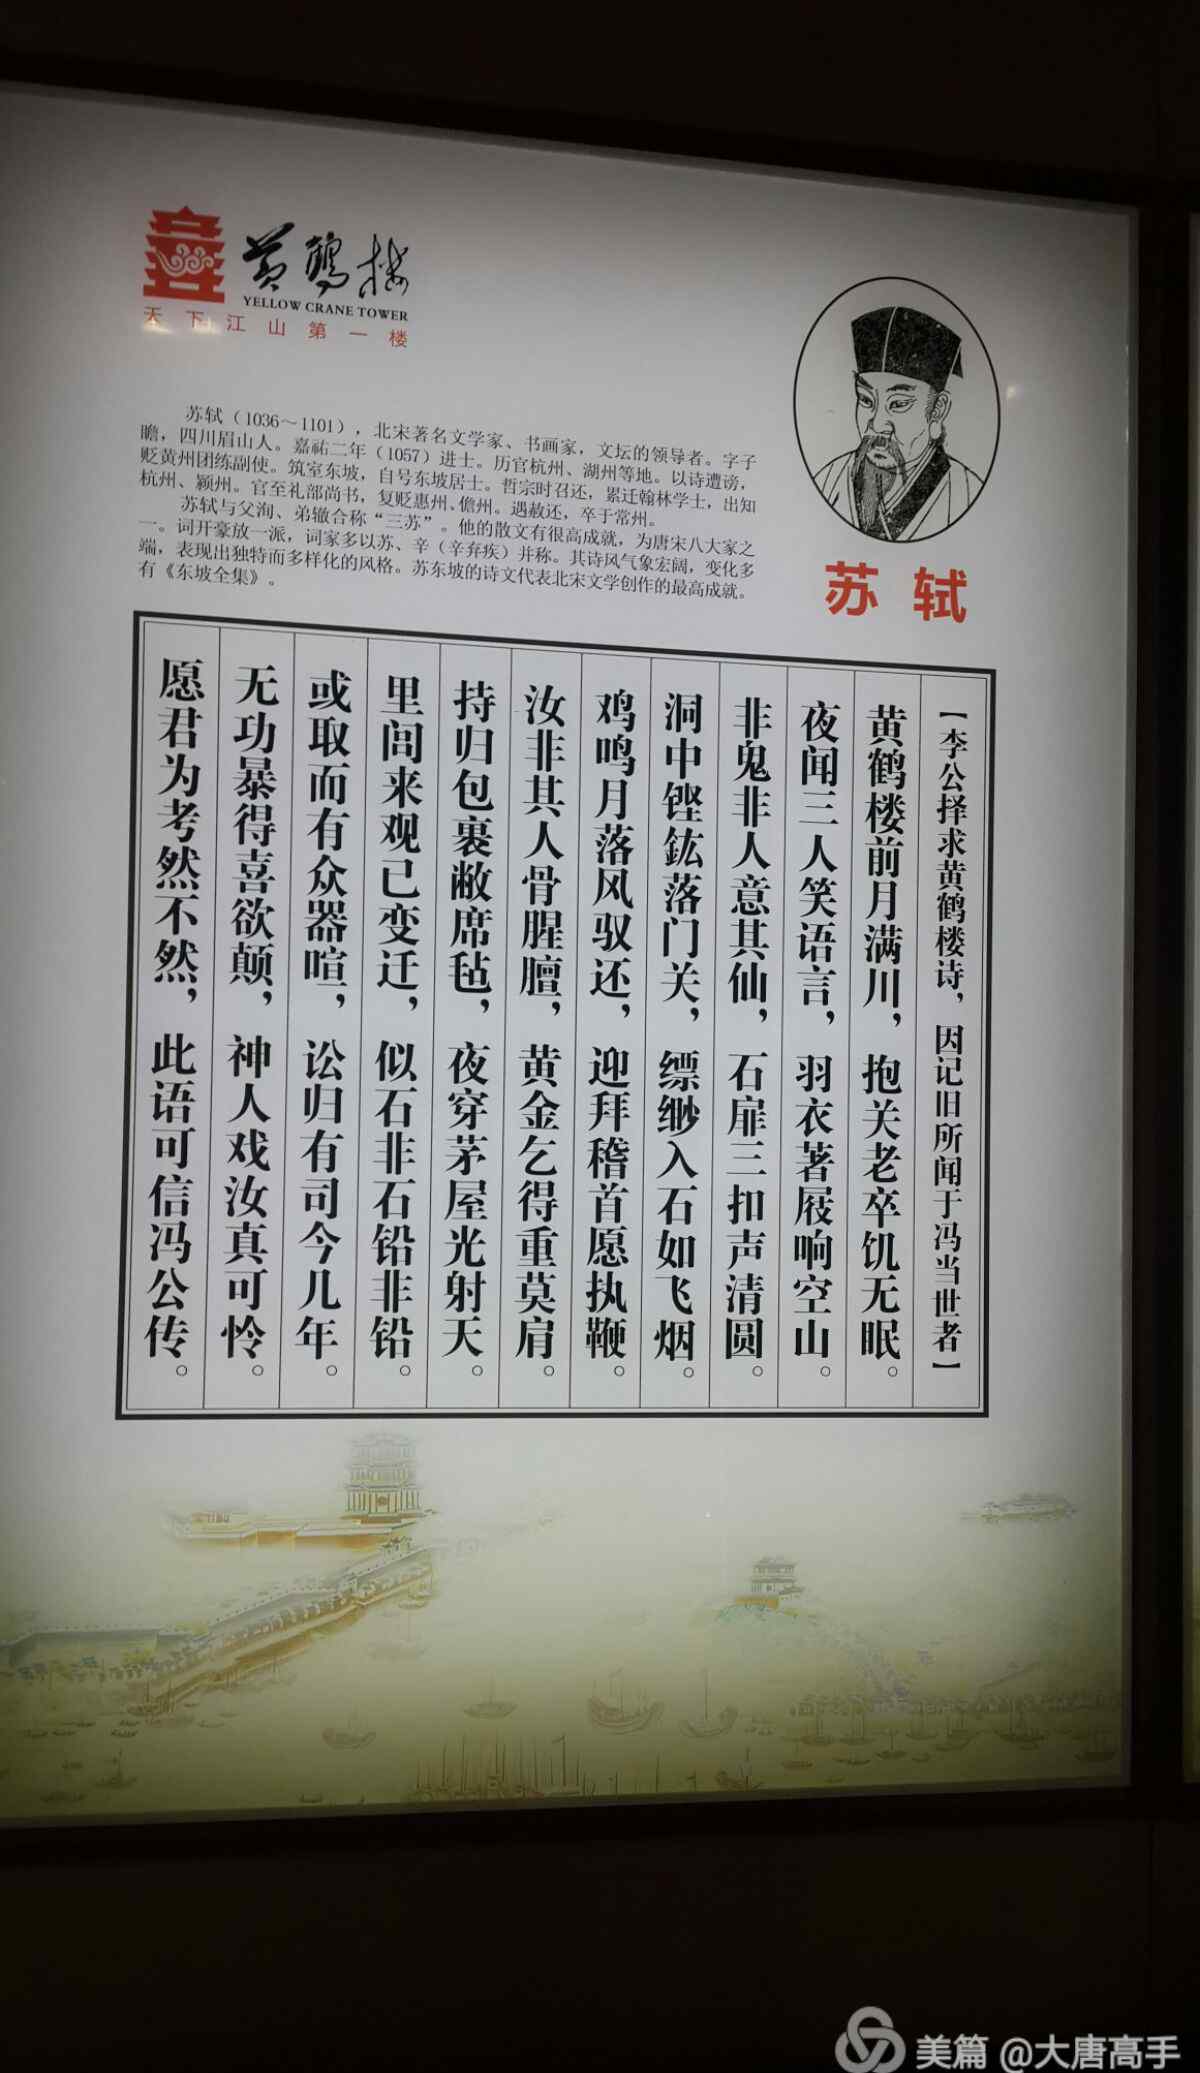 黄鹤楼
YELLOW CRANE TOWER
天下江山第一楼
苏轼（1036～1101），北宋著名文学家、书画家，文坛的领导者。字子
瞻，四川眉山人。嘉祐二年（1057）进士。历官杭州、湖州等地。以诗遭谤，
贬黄州团练副使。筑室东坡，自号东坡居士。哲宗时召还，累迁翰林学士，出知
杭州、颍州。官至礼部尚书，复贬惠州、儋州。遇赦还，卒于常州。
苏轼与父洵、弟辙合称“三苏”。他的散文有很高成就，为唐宋八大家之
一。词开豪放一派，词家多以苏、辛（辛弃疾）并称。其诗风气象宏阔，变化多
端，表现出独特而多样化的风格。苏东坡的诗文代表北宋文学创作的最高成就。
有《东坡全集》。
苏轼
【李公择求黄鹤楼诗，因记旧所闻于冯当世者】
黄鹤楼前月满川，抱关老卒饥无眠。
夜闻三人笑语言，羽衣著屐响空山。
非鬼非人意其仙，石扉三扣声清圆。
洞中铿鈜落门关，缥缈入石如飞烟。
鸡鸣月落风驭还，迎拜稽首愿执鞭。
汝非其人骨腥膻，黄金乞得重莫肩。
持归包裹敝席毡，夜穿茅屋光射天。
里闾来观已变迁，似石非石铅非铅。
或取而有众器喧，讼归有司今几年。
无功暴得喜欲颠，神人戏汝真可怜。
愿君为考然不然，此语可信冯公传。
美篇 @大唐高手